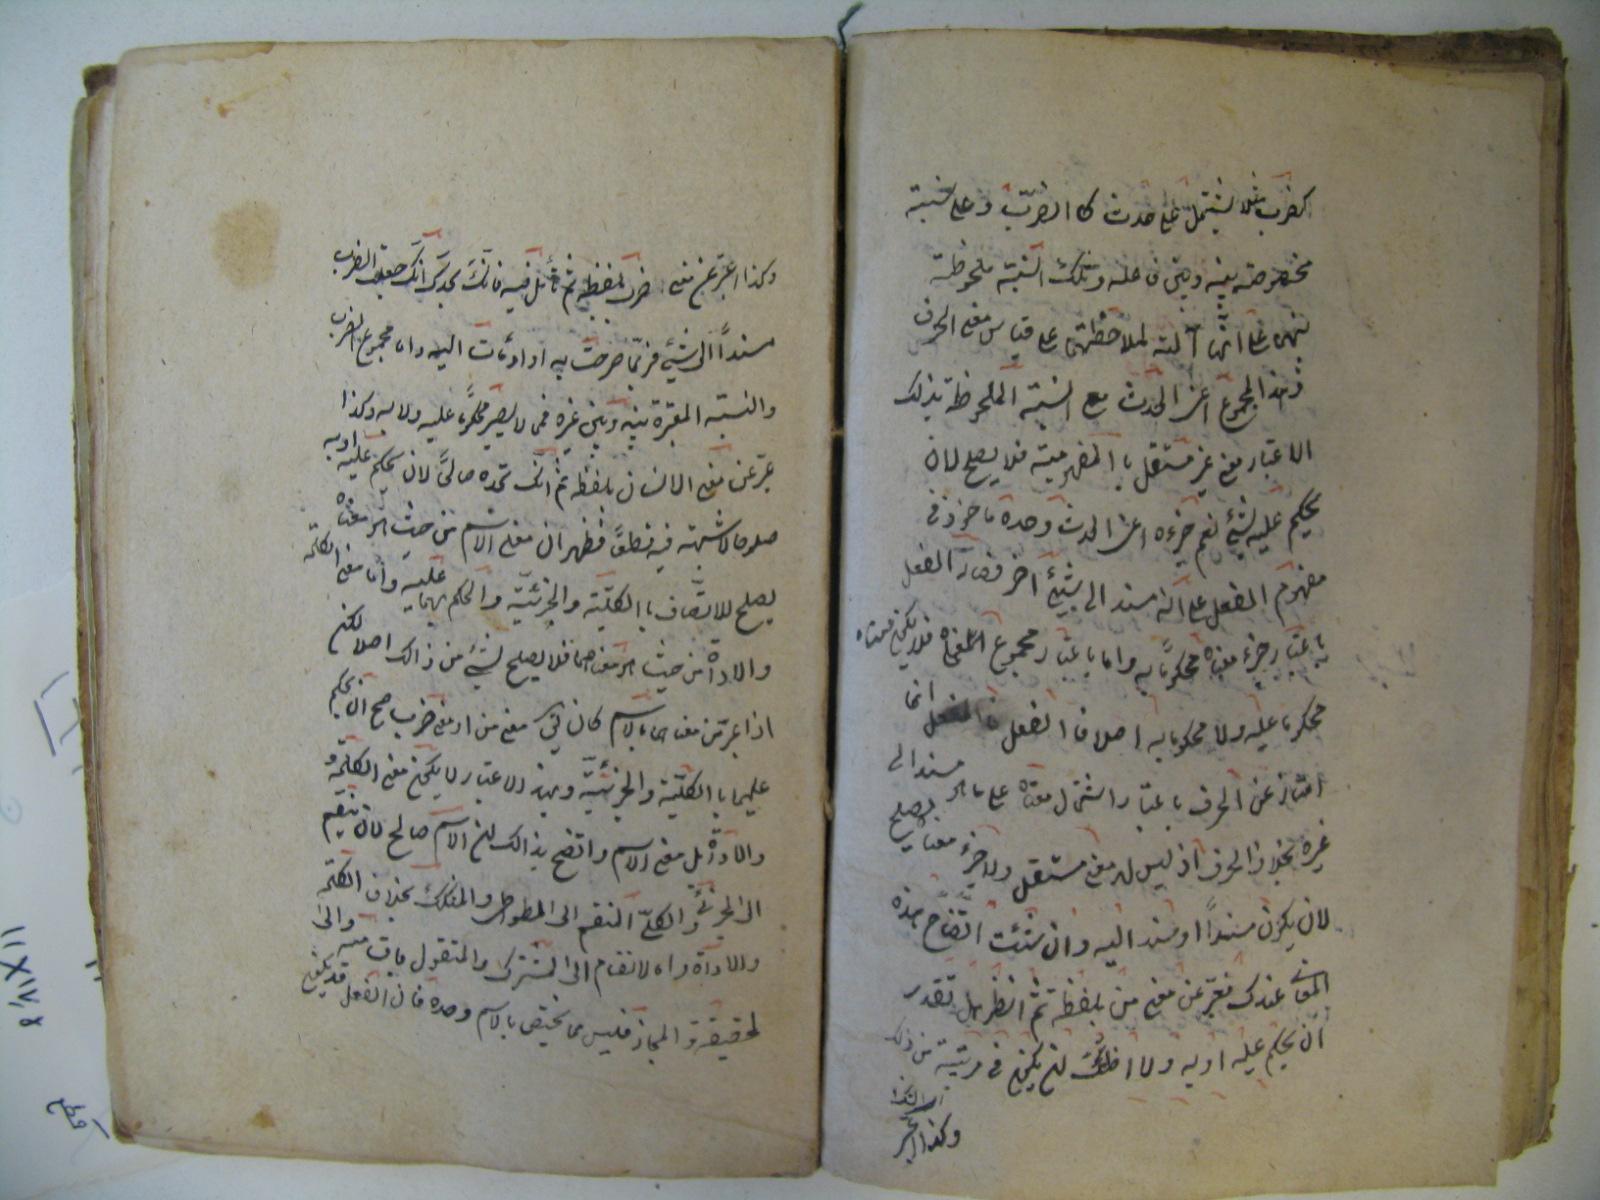 كضرب مثلا يشتمل على حدث كالضرب وعلى نسبة
مخصوصة بينه وبين فاعله وتلك النسبة ملحوظة
بينهما على انها آلة لملاحظتهما على قياس معنى الحرف
وهذا المجموع اعنى الحدث مع النسبة الملحوظة بذلك
الاعتبار معنى غير مستقل بالمفهومية فلا يصلح لان
يحكم عليه بشئ نعم جزءه اعنى الحدث وحده ماخوذ فى
مفهوم الفعل على انه مسند الى شيئ آخر فصار الفعل
باعتبار جزء معناه محكوما به واما باعتبار مجموع معناه فلا يكون
محكوما عليه ولا محكوما به اصلا فالفعل انما
امتاز عن الحرف باعتبار اشتمال معناه على ما هو مسند الى
غيره بخلاف الحرف اذ ليس له معنى مستقل ولا جزء معناه يصلح
لان يكون مسندًا او مسندا اليه وان شئت اتضاح هذه
المعانى عندك فعبر عن معنى من بلفظه ثم انظر هل تقدر
ان تحكم عليه او به ولا اظنك لن يكون فى مرتبة من ذلك
وكذا عبر
وكذا عبر عن معنى ضرب بلفظه ثم تأمل فيه فانك تجدك انك جعلت الضرب
مسنداً الى شيئ فربما صرحت به او اومأت اليه واما مجموع الضرب
والنسبة المعتبرة بينه وبين غيره فمما لا يصير محكوما عليه ولا به وكذا
عبر عن معنى الانسان بلفظه ثم انك تجده صالحا لان يحكم عليه او به
صلوحا لا شبهة فيه قطعًا فظهر ان معنى الاسم من حيث هو معناه
يصلح للاتصاف بالكلية والجزئية والحكم بهما عليه واما معنى الكلمة
والاداة من حيث هو معناهما فلا يصلح لشئ من ذالك اصلا لكن
اذا عبر عن معناهما بالاسم كان يق معنى من او معنى ضرب صح ان يحكم
عليهما بالكلية والجزئية وبهذا الاعتبار لا يكون معنى الكلمة و
والاداة بل معنى الاسم واتضح بذالك ان الاسم صالح لان ينقسم
الى الجزئى والكلى المنقسم الى المتواطى والمشكك بخلاف الكلمة
والاداة واما الانقسام الى المشترك والمنقول باقسامه والى
الحقيقة والمجاز فليس مما يختص بالاسم وحده فان الفعل قد يكون